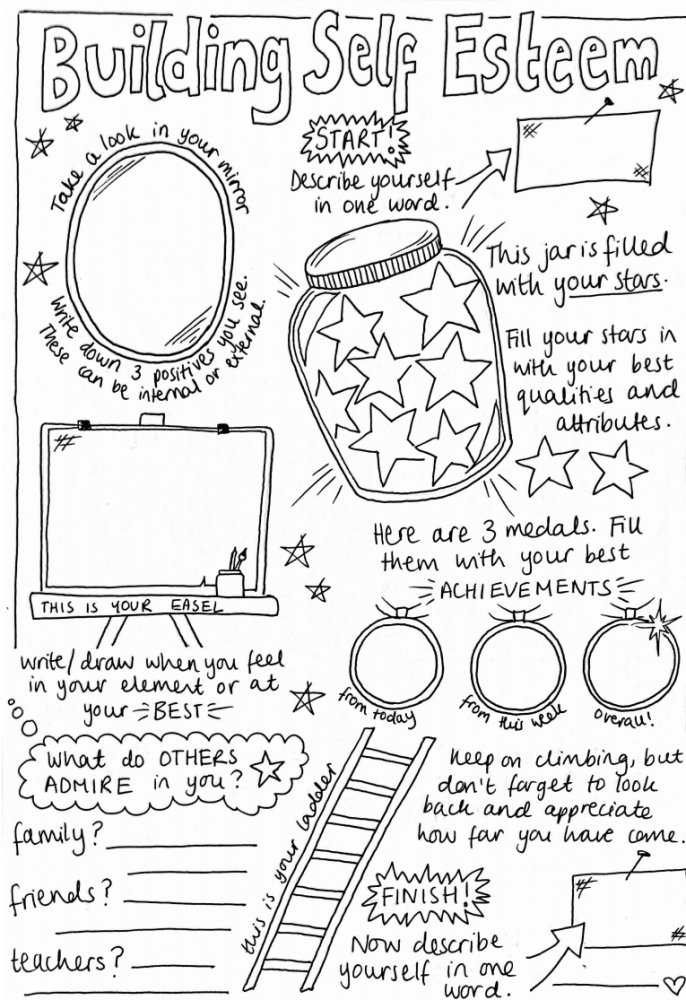 Building Self Esteem
START!
Describe yourself
in one word.
Take a look in your mirror
Write down 3 positives you see.
These can be internal or external.
This jar is filled
with your stars.
Fill your stars in
with your best
qualities and
attributes.
THIS IS YOUR EASEL
Write/draw when you feel
in your element or at
your BEST
Here are 3 medals. Fill
them with your best
ACHIEVEMENTS
from today
from this week
overall!
What do OTHERS
ADMIRE in you?
family?
friends?
teachers?
this is your ladder
Keep on climbing, but
don't forget to look
back and appreciate
how far you have come.
FINISH!
Now describe
yourself in one
word.